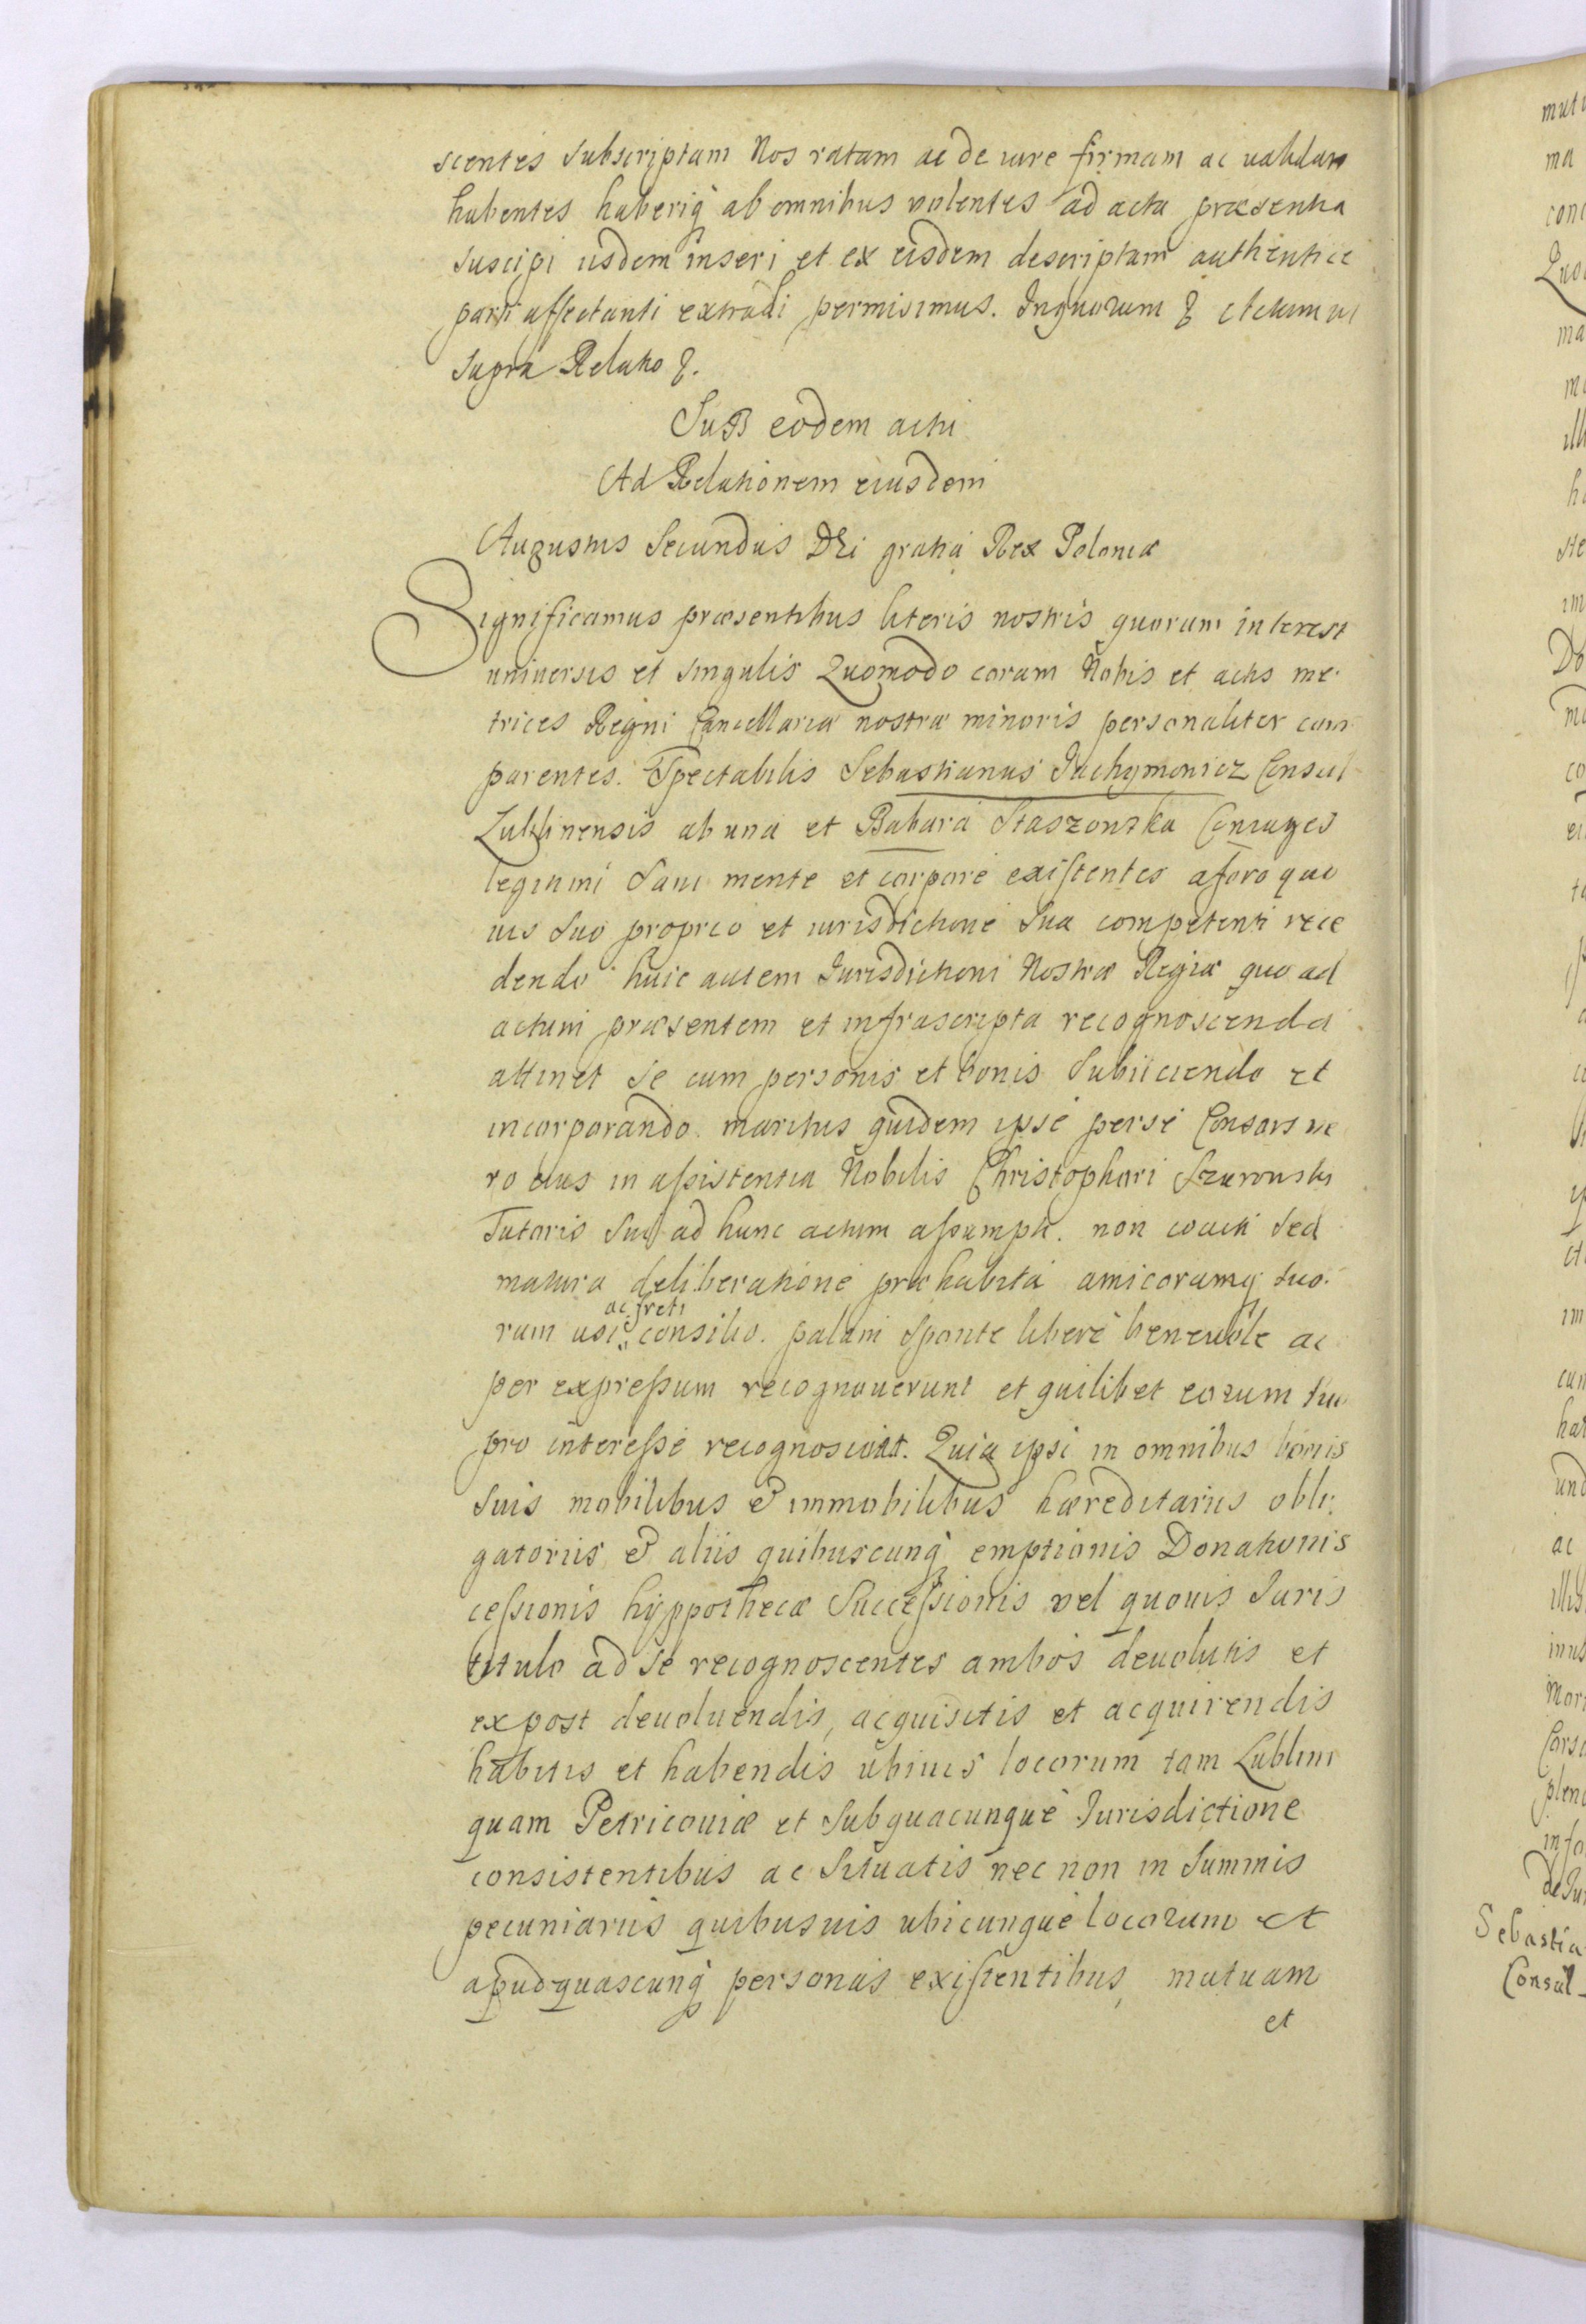 scentes subscriptam Nos ratam ac de iure firmam ac validam
habentes haberiq ab omnibus volentes ad acta præsentia
suscipi iisdem inseri et ex eisdem descriptam authentice
parti affectanti extradi permisimus. Inquorum & Actum ut
supra Relatio &.
Sub eodem actu
Ad Relationem eiusdem
Augustus Secundus DEi gratia Rex Poloniæ
Significamus præsentibus literis nostris quorum interest
universis et singulis Quomodo coram Nobis et actis me-
trices Regni Cancellariæ nostræ minoris personaliter com-
parentes. Spectabilis Sebastianus Jachymowicz Consul
Lublinensis ab una et Babara Staszowska Coniuges
legitimi sani mente et corpore existentes a foro quo
vis suo proprio et iurisdictione sua competenti rece
dendo huic autem Jurisdictioni Nostræ Regiæ quo ad
actum præsentem et infrascripta recognoscenda
attinet se cum personis et bonis subiiciendo et
incorporando. maritus quidem ipse perse Consors ve
ro eius in assistentia Nobilis Christophori Szurowski
Tutoris sui ad hunc actum assumpti. non coacti sed
matura deliberatione præhabita amicorumq suo.
ac freti
rum usi consilio. palam sponte libere benevole ac
per expressum recognoverunt et quilibet eorum suo
pro interesse recognoscunt. Quia ipsi in omnibus bonis
suis mobilibus & immobilibus hæreditariis obli-
gatoriis & aliis quibuscunq emptionis Donationis
cessionis hyppothecæ Successionis vel quovis Juris
titulo ad se recognoscentes ambos devolutis et
expost devoluendis, acquisitis et acquirendis
habitis et habendis ubivis locorum tam Lublini
quam Petricoviæ et subquacunque Jurisdictione
consistentibus ac situatis nec non in summis
pecuniariis quibusvis ubicunque locorum et
apudquascunq personas existentibus, mutuam
et
Sebastia
Consul